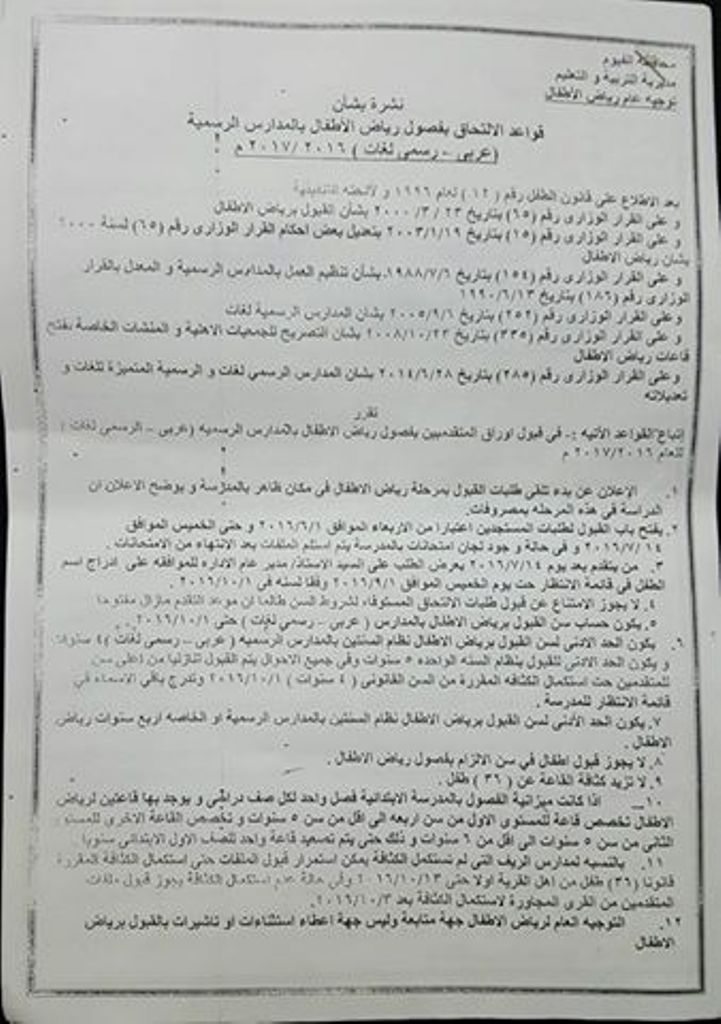 محافظة الفيوم
مديرية التربية و التعليم
توجيه عام رياض الأطفال
نشرة بشأن
قواعد الالتحاق بفصول رياض الأطفال بالمدارس الرسمية
(عربى – رسمى لغات ) ٢٠١٦ /٢٠١٧ م
بعد الاطلاع على قانون الطفل رقم ( ١٢ ) لعام ١٩٩٦ و لائحته التنفيذية
و على القرار الوزارى رقم (٦٥) بتاريخ ٢٣ / ٣/ ٢٠٠٠ بشأن القبول برياض الأطفال
و على القرار الوزارى رقم (١٥) بتاريخ ٢٠٠٣/١/١٩ بتعديل بعض احكام القرار الوزارى رقم (٦٥) لسنة ٢٠٠٠
بشان رياض الاطفال
و على القرار الوزارى رقم (١٥٤) بتاريخ ١٩٨٨/٧/٦ بشأن تنظيم العمل بالمدارس الرسمية و المعدل بالقرار
الوزارى رقم (١٨٦) بتاريخ ١٩٩٠/٦/١٣
وعلى القرار الوزارى رقم (٢٥٢) بتاريخ ٢٠٠٥/٩/٦ بشان المدارس الرسمية لغات
و على القرار الوزارى رقم (٣٣٥) بتاريخ ٢٠٠٨/١٠/٢٣ بشان التصريح للجمعيات الاهلية و المنشات الخاصة بفتح
قاعات رياض الاطفال
وعلى القرار الوزارى رقم (٢٨٥) بتاريخ ٢٠١٤/٦/٢٨ بشان المدارس الرسمي لغات و الرسمية المتميزة للغات و
تعديلاته
تقرر
إتباع القواعد الأتيه :- فى قبول اوراق المتقدميين بفصول رياض الاطفال بالمدارس الرسميه (عربى – الرسمى لغات )
للعام ٢٠١٧/٢٠١٦ م
١. الإعلان عن بدء تلقى طلبات القبول بمرحلة رياض الاطفال فى مكان ظاهر بالمدرسة و يوضح الاعلان ان
الدراسة فى هذه المرحله بمصروفات.
٢. يفتح باب القبول لطلبات المستجدين اعتبارا من الاربعاء الموافق ٢٠١٦/٦/١ و حتى الخميس الموافق
١٤ /٢٠١٦/٧ و فى حالة و جود لجان امتحانات بالمدرسة يتم استلم الملفات بعد الانتهاء من الامتحانات .
٣. من يتقدم بعد يوم ٢٠١٦/٧/١٤ يعرض الطلب على السيد الاستاذ/ مدير عام الاداره للموافقه على ادراج اسم
الطفل فى قائمة الانتظار حت يوم الخميس الموافق ٢٠١٦/٩/١ وفقا لسنه فى ٢٠١٦/١٠/١ .
٤. لا يجوز الامتناع عن قبول طلبات الالتحاق المستوفاه لشروط السن طالما ان موعد التقدم مازال مفتوحا
٥. يكون حساب سن القبول برياض الاطفال بالمدارس ( عربى – رسمى لغات ) حتى ٢٠١٦/١٠/١ .
٦. يكون الحد الادنى لسن القبول برياض الاطفال نظام السنتين بالمدارس الرسميه ( عربى – رسمى لغات ) ٤ سنوات
و يكون الحد الادنى للقبول بنظام السنه الواحده ٥ سنوات وفى جميع الاحوال يتم القبول تنازليا من اعلى سن
للمتقدمين حت استكمال الكثافه المقررة من السن القانونى ( ٤ سنوات ) ٢٠١٦/١٠/١ وتدرج باقى الاسماء فى
قائمة الانتظار للمدرسة .
٧. يكون الحد الأدنى لسن القبول برياض الاطفال نظام السنتين بالمدارس الرسمية او الخاصه اربع سنوات رياض
الاطفال .
٨. لا يجوز قبول اطفال في سن الالزام بفصول رياض الاطفال .
٩. لا تزيد كثافة القاعة عن ( ٣٦ ) طفل .
١٠. اذا كانت ميزانية الفصول بالمدرسة الابتدائية فصل واحد لكل صف دراسى و يوجد بها قاعتين لرياض
الاطفال تخصص قاعة للمستوى الاول من سن اربعه الى اقل من سن ٥ سنوات و تخصص القاعة الاخرى للمستوى
الثانى من سن ٥ سنوات الى اقل من ٦ سنوات و ذلك حتى يتم تصعيد قاعة واحد للصف الاول الابتدائى سنويا
١١. بالنسبه لمدارس الريف التى لم تستكمل الكثافة يمكن استمرار قبول الملفات حتى استكمال الكثافة المقررة
قانونا (٣٦) طفل من اهل القرية اولا حتى ٢٠١٦/١٠/١٣ وفى حالة عدم استكمال الكثافة يجوز قبول ملفات
المتقدمين من القرى المجاورة لاستكمال الكثافة بعد ٢٠١٦/١٠/٣.
١٢. التوجيه العام لرياض الاطفال جهة متابعة وليس جهة اعطاء استثناءات او تاشيرات بالقبول برياض
الاطفال